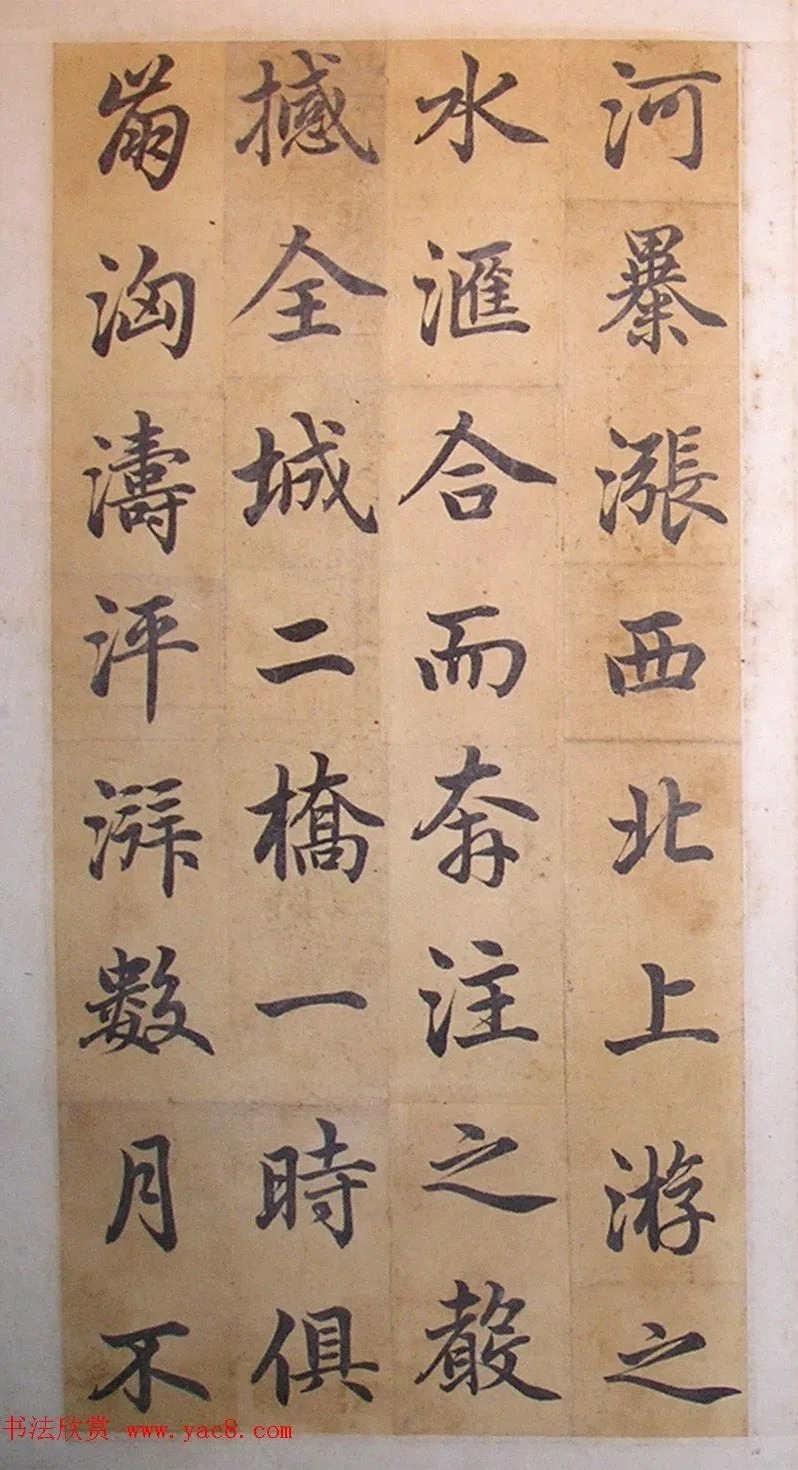 河暴漲西北上游之
水滙合而奔注之聲
撼全城二橋一時俱
崩洶濤泙湃數月不
书法欣赏 www.yac8.com